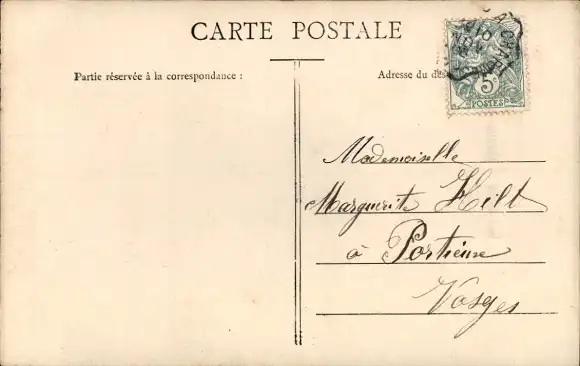 CARTE POSTALE
Partie réservée à la correspondance :
Adresse du des
5c
POSTES
Mademoiselle
Marguerite Hilt
à Portieux
Vosges